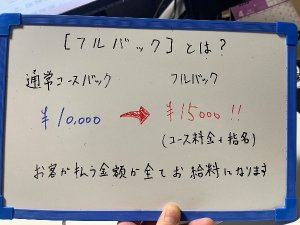 [フルバック]とは?
通常コースバック フルバック
¥10,000 → ¥15000!!
(コース料金+指名)
お客が払う金額が全てお給料になります